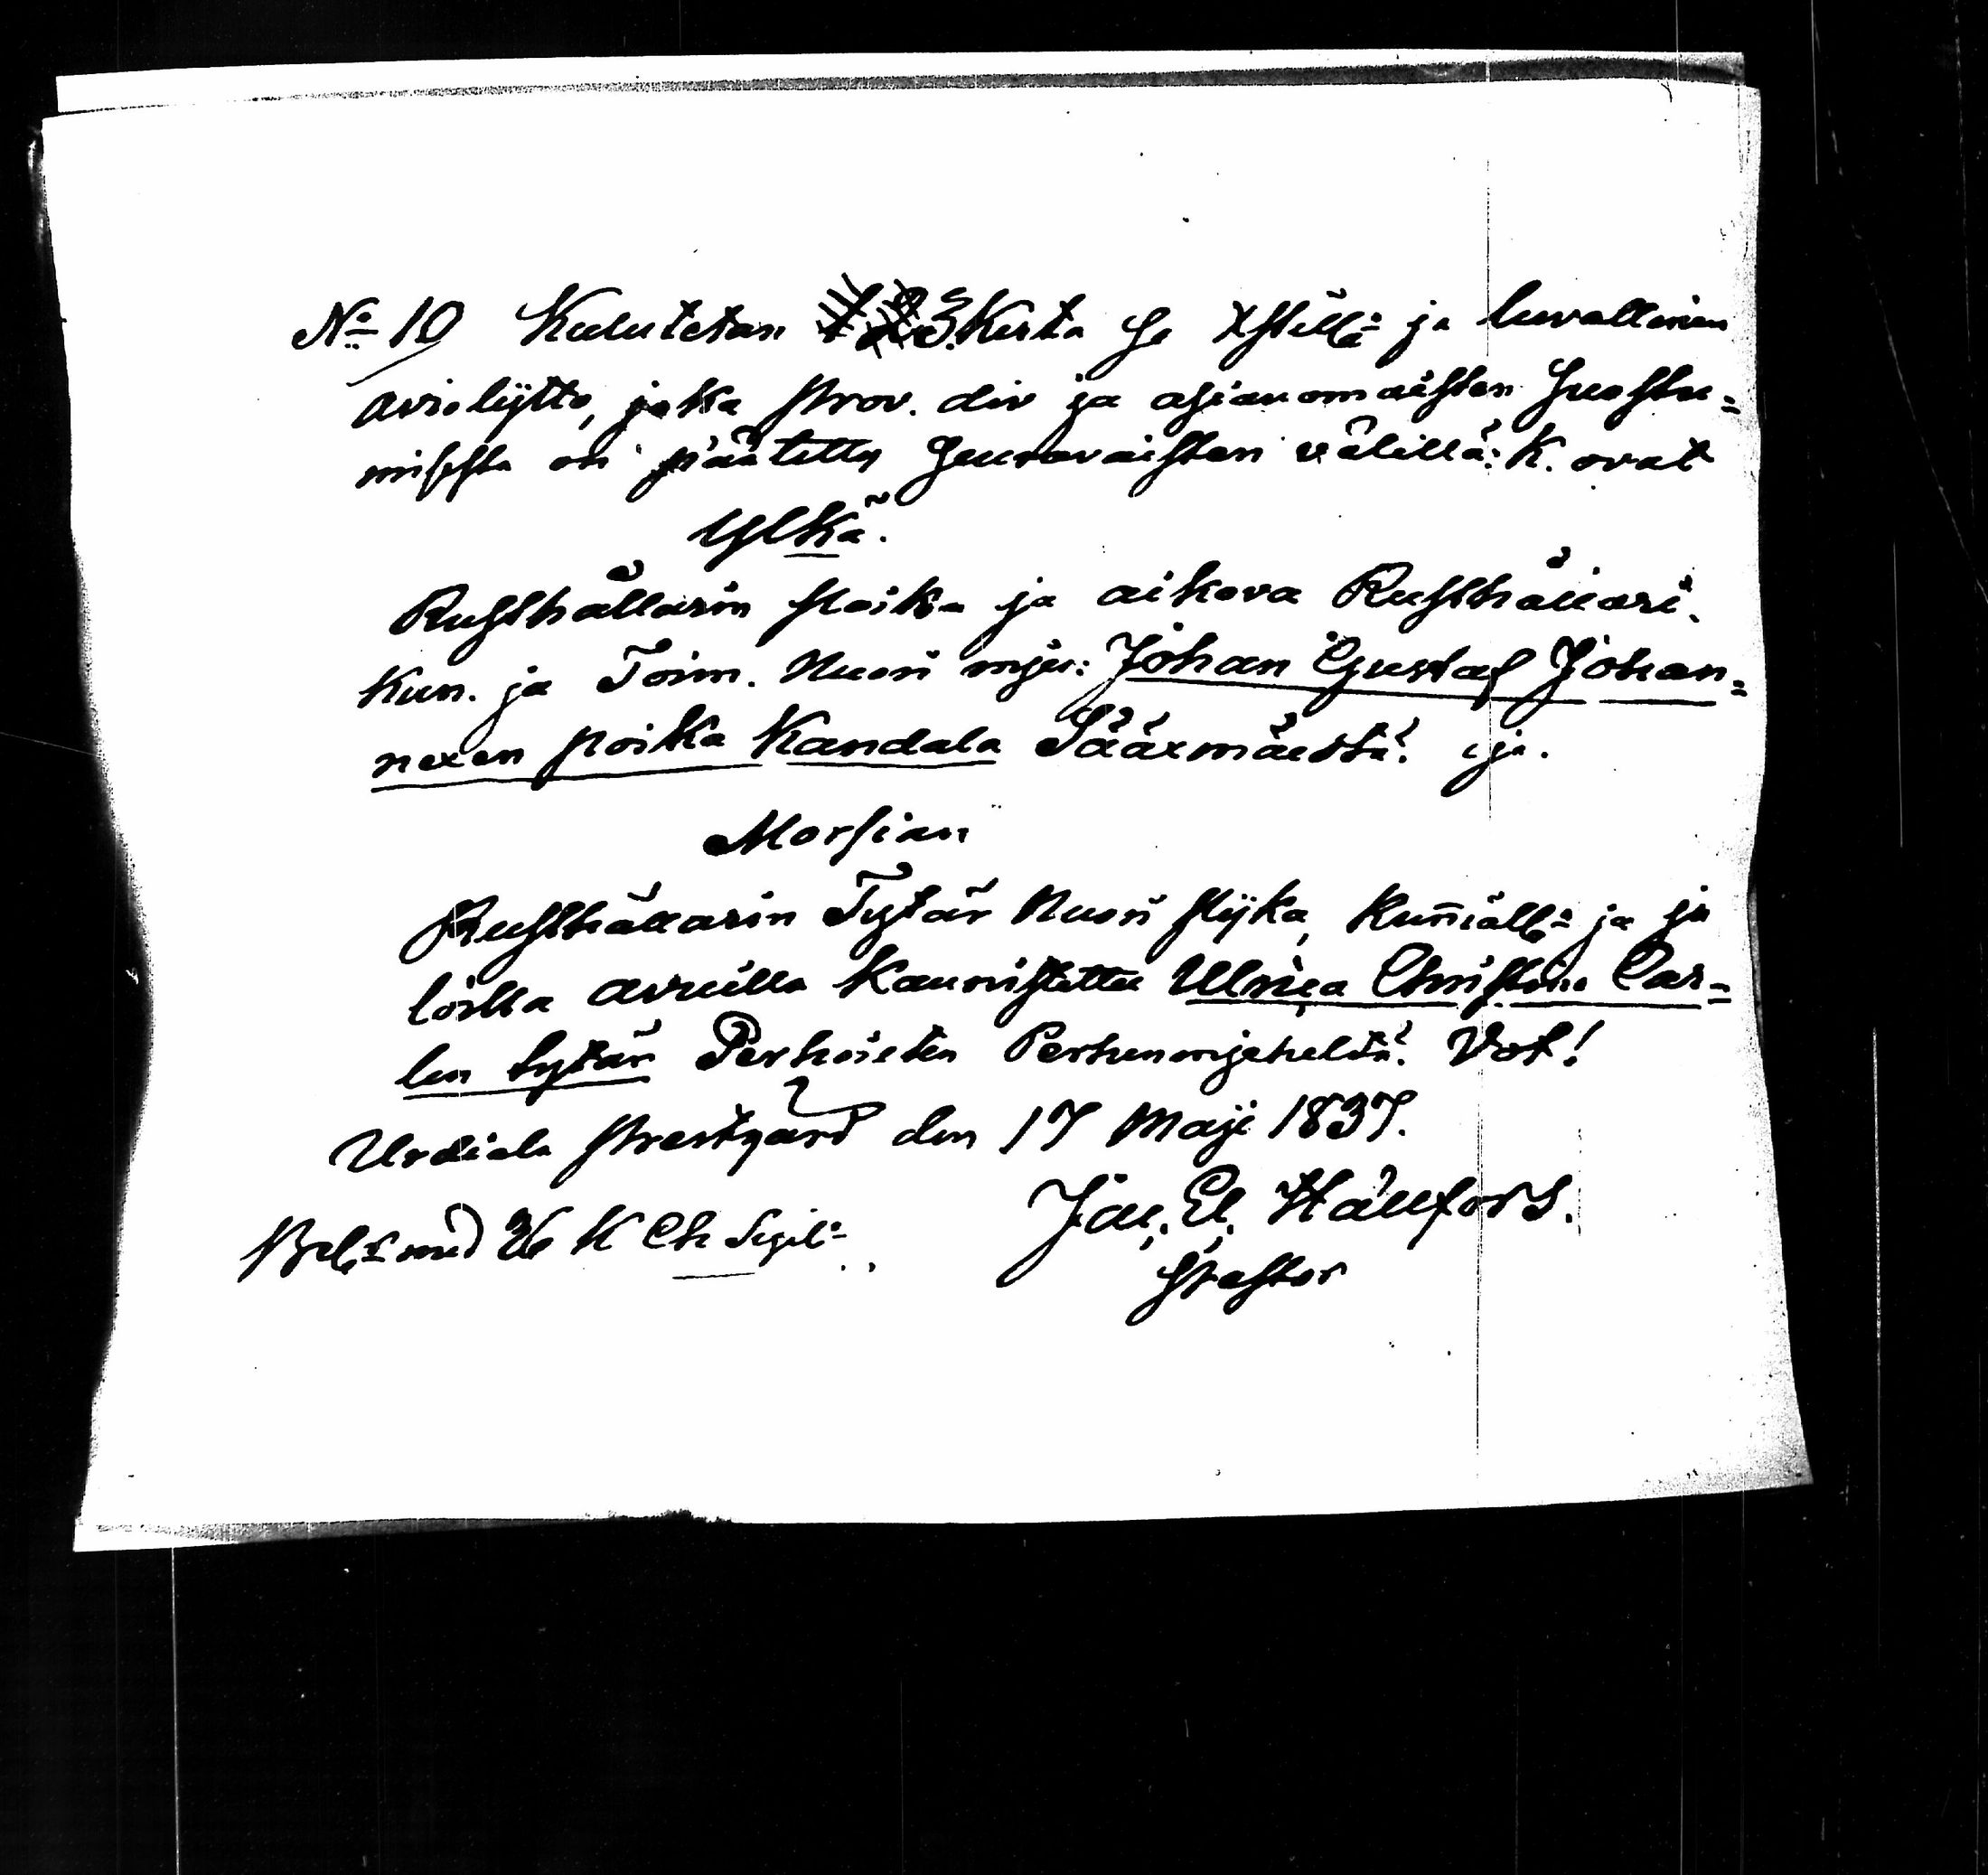 No 10 Kuulutetan 3. Kerta se Xstill:n ja luvallinen
aviolijtto, joka prov. div ja asianomaisten suostu=
misesta on päätetty seuravaisten välillä: K. ovat
Ylkä.
Rusthållarin poika ja aikova Rusthållari.
Kun. ja Toim. Nuori mjes: Johan Gustaf Johan=
nexen poika Kandala Sääxmäestä: ja.
Morsian
Rusthållarin Tytär Nuori pijka, Kuñiall:n ja ja
loilla avuilla Kaunistettu Ulrica Christina Car=
len tytär Perhoisten Perhenmjeheldä. Vot!
Urdiala prestgård den 17 Maji 1837.
med K Ch Sigil:
Jac. El. Hällfors.
Pastor